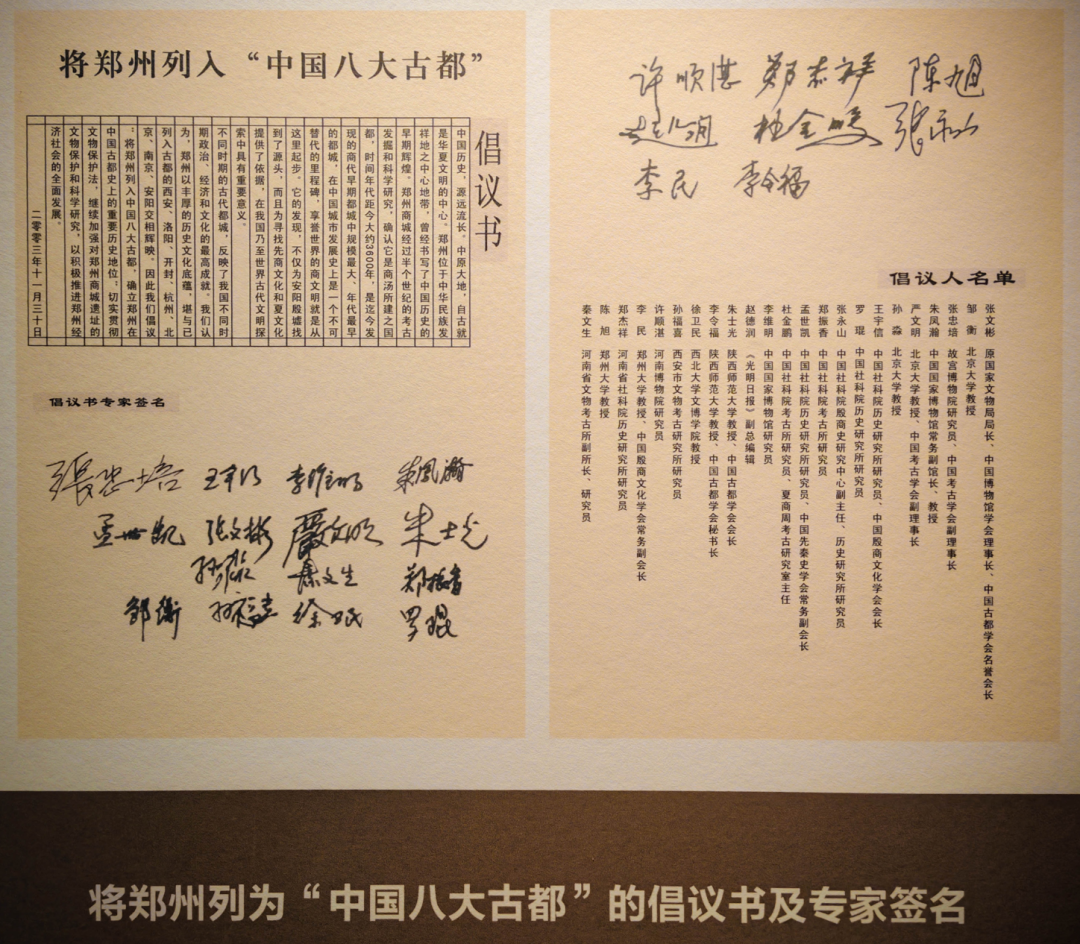 将郑州列入“中国八大古都”
倡议书
中国历史，源远流长。中原大地，自古就
是华夏文明的中心。郑州位于中华民族发
祥地之中心地带，曾经书写了中国历史的
早期辉煌。郑州商城经过半个世纪的考古
发掘和科学研究，确认它是商汤所建之国
都，时间年代距今大约3600年，是迄今发
现的商代早期都城中规模最大、年代最早
的都城，在中国城市发展史上是一个不可
替代的里程碑，享誉世界的商文明就是从
这里起步。它的发现，不仅为安阳殷墟找
到了源头，而且为寻找先商文化和夏文化
提供了依据，在我国乃至世界古代文明探
索中具有重要意义。
不同时期的古代都城，反映了我国不同时
期政治、经济和文化的最高成就。我们认
为，郑州以丰厚的历史文化底蕴，堪与已
列入古都的西安、洛阳、开封、杭州、北
京、南京、安阳交相辉映，因此我们倡议
：将郑州列入中国八大古都，确立郑州在
中国古都史上的重要历史地位；切实贯彻
文物保护法，继续加强对郑州商城遗址的
文物保护和科学研究，以积极推进郑州经
济社会的全面发展。
二零零三年十一月三十日
倡议书专家签名
張忠培 王宇信 李维明 朱凤瀚
孟世凯 张文彬 嚴文明 朱士光
孙淼 秦文生 郑振香
邹衡 孙福喜 徐卫民 罗琨
许顺湛 郑杰祥 陈旭
杜金鹏 张永山
李民 李令福
倡议人名单
张文彬 原国家文物局局长、中国博物馆学会理事长、中国古都学会名誉会长
邹 衡 北京大学教授
张忠培 故宫博物院研究员、中国考古学会副理事长
朱凤瀚 中国国家博物馆常务副馆长、教授
严文明 北京大学教授、中国考古学会副理事长
孙 淼 北京大学教授
王宇信 中国社科院历史研究所研究员、中国殷商文化学会会长
罗 琨 中国社科院历史研究所研究员
张永山 中国社科院殷商史研究中心副主任、历史研究所研究员
郑振香 中国社科院考古所研究员
孟世凯 中国社科院历史研究所研究员、中国先秦史学会常务副会长
杜金鹏 中国社科院考古所研究员、夏商周考古研究室主任
李维明 中国国家博物馆研究员
赵德润 《光明日报》副总编辑
朱士光 陕西师范大学教授、中国古都学会会长
李令福 陕西师范大学教授、中国古都学会秘书长
徐卫民 西北大学文博学院教授
孙福喜 西安市文物考古研究所研究员
许顺湛 河南博物院研究员
李 民 郑州大学教授、中国殷商文化学会常务副会长
郑杰祥 河南省社科院历史研究所研究员
陈 旭 郑州大学教授
秦文生 河南省文物考古所副所长、研究员
将郑州列为“中国八大古都”的倡议书及专家签名